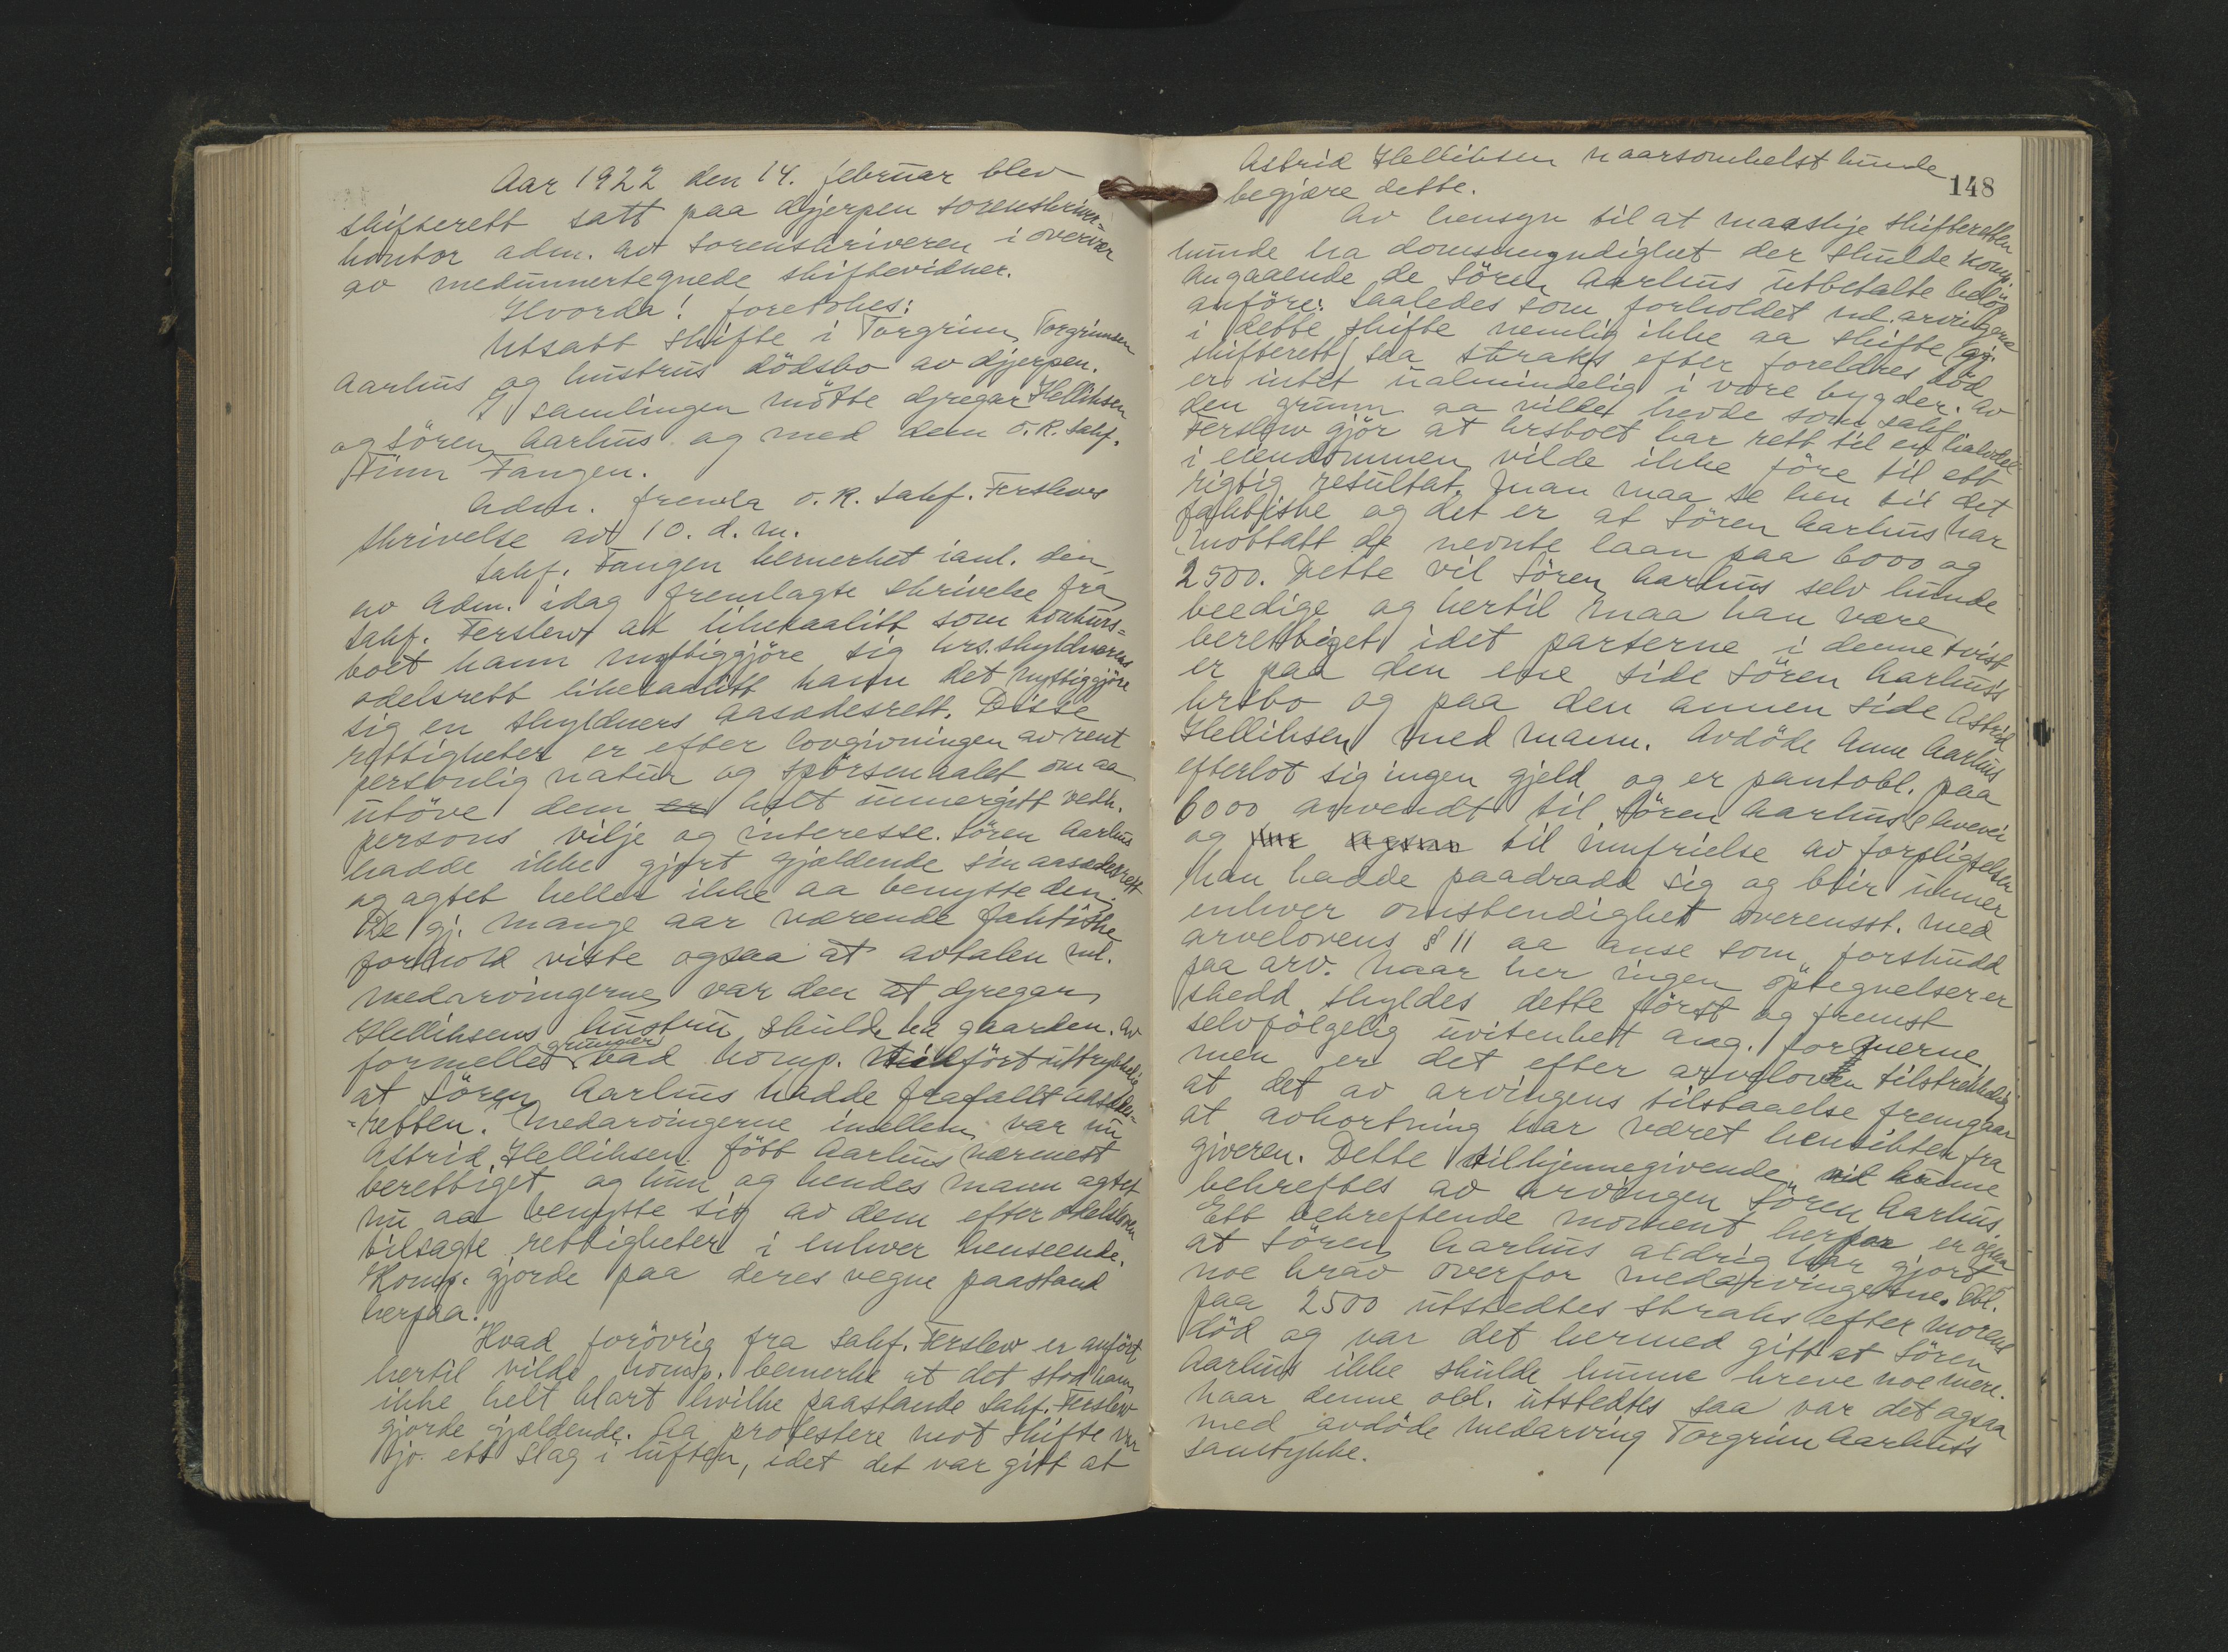 Aar 1922 den 14. februar blev
skifterett satt paa Gjerpen sorenskriver-
kontor adm. av sorenskriveren i overvær
av medunnertegnede skiftevidner.
Hvorda! foretokes:
Utsatt skifte i Torgrim Torgrimsen
Aarhus og hustrus dödsbo av Gjerpen.
I samlingen mötte Gregar Hellihsen
og Sören Aarhus og med dem O.R. sakf.
Finn Fangen.
Adm. fremla O.R. sakf. Ferslews
skrivelse av 10. d.m.
Sakf. Fangen bemerket ianl. den
av adm. idag fremlagte skrivelse fra
sakf. Ferslew at likesaalitt som konkurs-
boet kann nyttiggjöre sig krs. skyldnerens
odelsrett likesaalitt kann det nyttiggjöre
sig en skyldners aasædesrett. Disse
rettigheter er efter lovgivningen av rent
personlig natur og spörsmaalet om aa
utöve dem er helt unnergitt vedk.
persons vilje og interesse. Sören Aarhus
hadde ikke gjort gjældende sin aasædesrett
og agtet heller ikke aa benytte den.
De gj. mange aar værende faktiske
forhold viste ogsaa at avtalen ml.
medarvingerne var den at Gregar
Hellihsens hustru skulde ha gaarden. Av
formelle grunner bad komp. tilfört uttrykkelig
at Sören Aarhus hadde frafallt aasædes-
retten. Medarvingerne imellem var nu
Astrid Hellihsen född Aarhus nærmest
berettiget og hun og hendes mann agtet
nu aa benytte sig av dem efter odelsloven
tilsagte rettigheter i enhver henseende.
Komp. gjorde paa deres vegne paastand
herpaa.
Hvad forövrig fra sakf. Ferslew er anfört
hertil vilde komp. bemerke at det stod ham
ikke helt klart hvilke paastande sakf. Ferslew
gjorde gjældende. Aa protestere mot skifte var
jo ett slag i luften, idet det var gitt at
148
Astrid Hellihsen naarsomhelst kunde
begjære dette.
Av hensyn til at maaskje skifteretten
kunde ha domsmyndighet der skulde komp.
angaaende de Sören Aarhus utbetalte belöp
anföre: Saaledes som forholdet ml. arvingerne
i dette skifte nemlig ikke aa skifte (gj.
skifterett) saa straks efter foreldres död
er intet ualmindelig i vore bygder. Av
den grunn aa ville hevde som sakf.
Ferslew gjör at krsboet har rett til en halvdel
i eiendommen vilde ikke före til ett
rigtig resultat. Man maa se hen til det
faktiske og det er at Sören Aarhus har
mottatt de nevnte laan paa 6000 og
2500. Dette vil Sören Aarhus selv kunde
beedige og hertil maa han være
berettiget idet parterne i denne tvist
er paa den ene side Sören Aarhus's
krsbo og paa den annen side Astrid
Hellihsen med mann. Avdöde Anne Aarhus
efterlot sig ingen gjeld og er pantobl. paa
6000 anvendt til Sören Aarhus's
og til innfrielse av forpligtelser
han hadde paadradd sig og blir unner
enhver omstendighet overensst. med
arvelovens § 11 aa anse som forskudd
paa arv. Naar her ingen optegnelser er
skedd skyldes dette först og fremst
selvfölgelig uvitenhet ang. formerne,
men er det efter arveloven tilstrekkelig
at det av arvingens tilstaaelse fremgaar
at avkortning har været hensikten fra
giveren. Dette tilkjennegivende vil kunne
bekreftes av arvingen Sören Aarhus.
Ett bekreftende moment herfor er ogsaa
at Sören Aarhus aldrig har gjort
noe krav overfor medarvingerne. Obl.
paa 2500 utstedtes straks efter morens
död og var det hermed gitt at Sören
Aarhus ikke skulde kunne kreve noe mere.
Naar denne obl. utstedtes saa var det ogsaa
med avdöde medarving Torgrim Aarhus's
samtykke.